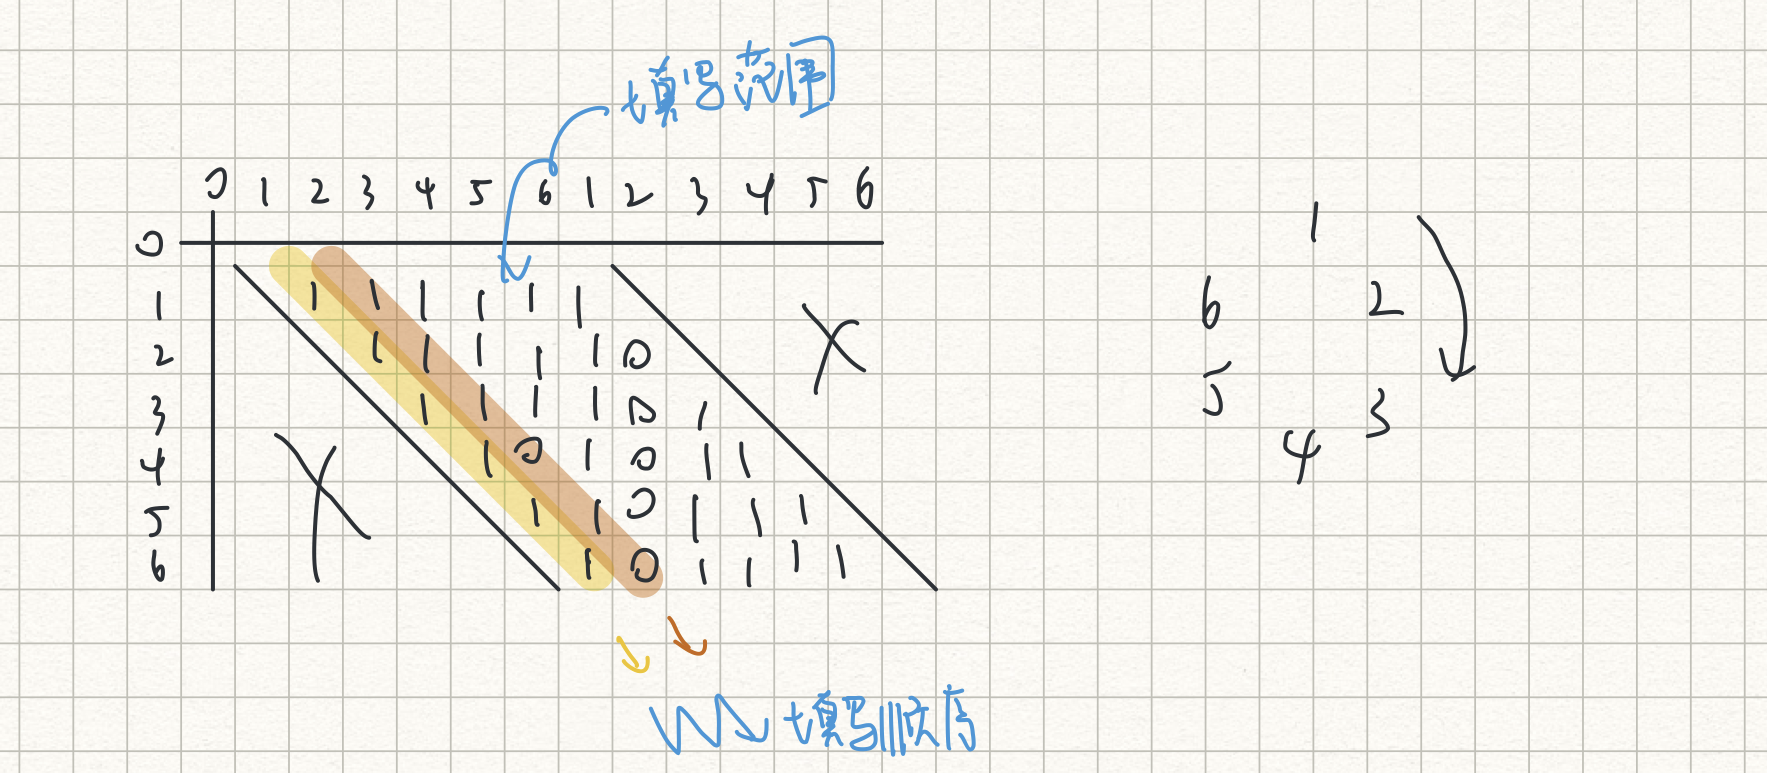 填写范围
0 1 2 3 4 5 6 1 2 3 4 5 6
0
1 1 1 1 1 1 1 X
2 1 1 1 1 1 0
3 1 1 1 1 0 1
4 1 0 1 0 1 1
5 1 1 0 1 1 1
6 1 0 1 1 1 1
X
填写顺序
1
6 2
5 3
4